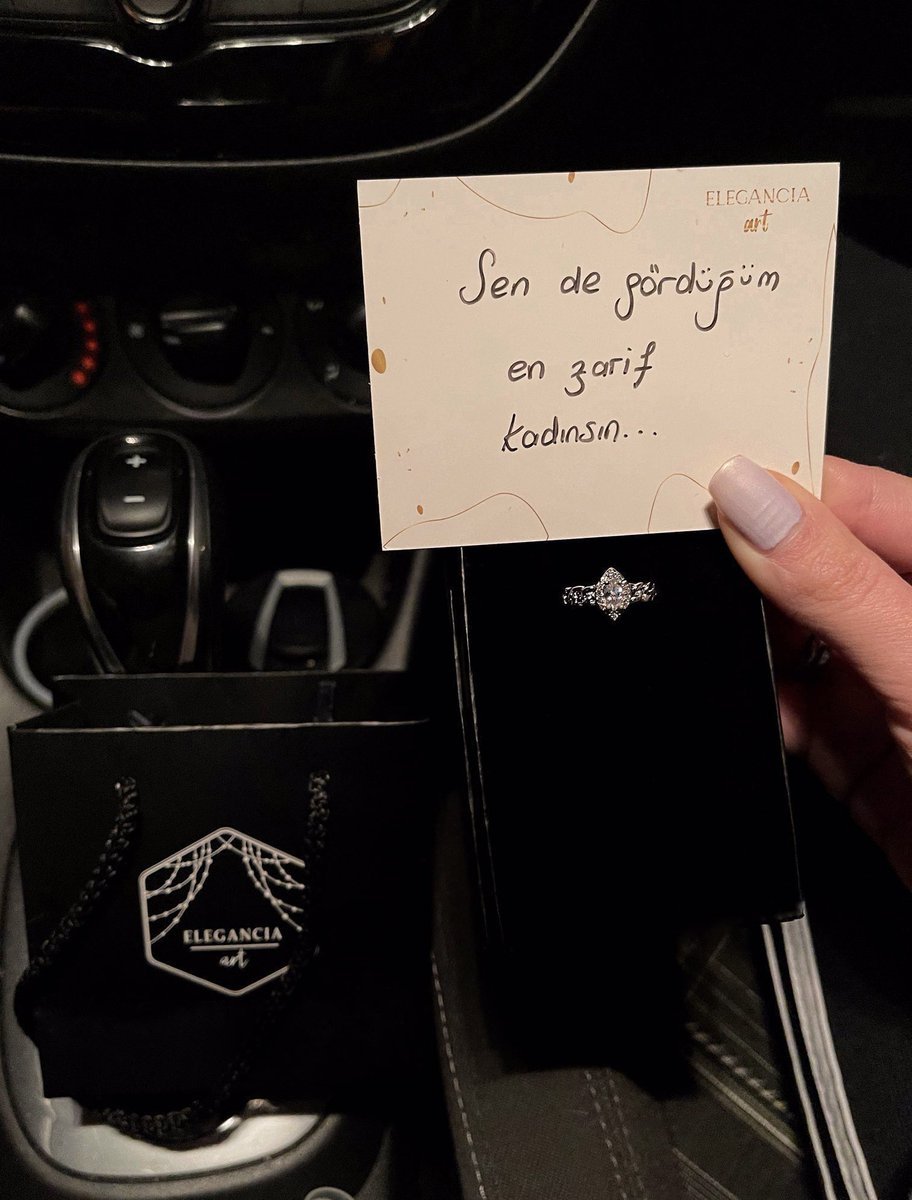 ELEGANCIA
art
Sen de gördüğüm
en zarif
kadınsın...
+
-
ELEGANCIA
art